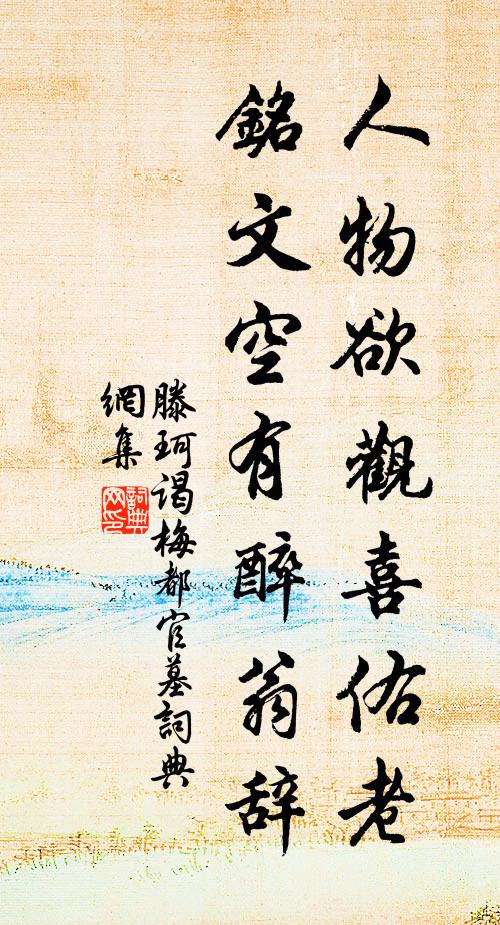 人物欲觀喜佑老
銘文空有醉翁辞
滕珂謁梅都官墓詞典
網集
詞典
网印